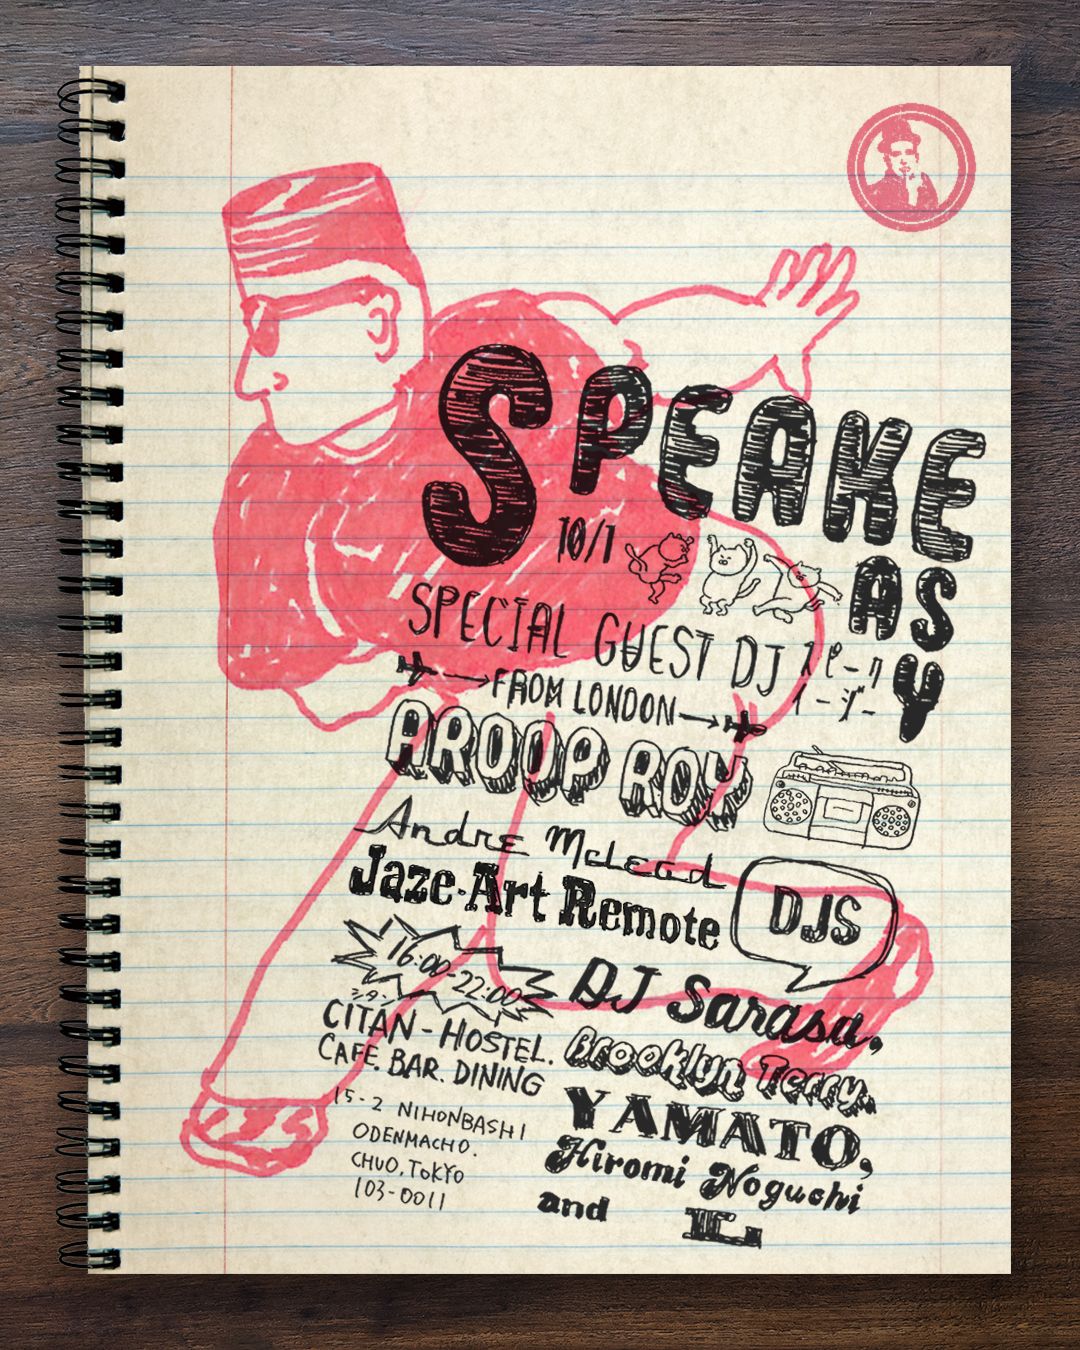 SPEAKE
AS
Y
10/1
SPECIAL GUEST DJ
スピーク
イージー
FROM LONDON
AROOP ROY
Andre McLeod
Jaze-Art Remote
DJS
16:00-22:00
DJ Sarasa,
シタン
CITAN-HOSTEL.
CAFE. BAR. DINING
Brooklyn Terry.
15-2 NIHONBASHI
ODENMACHO.
CHUO, TOKYO
103-0011
YAMATO,
Hiromi Noguchi
and IL